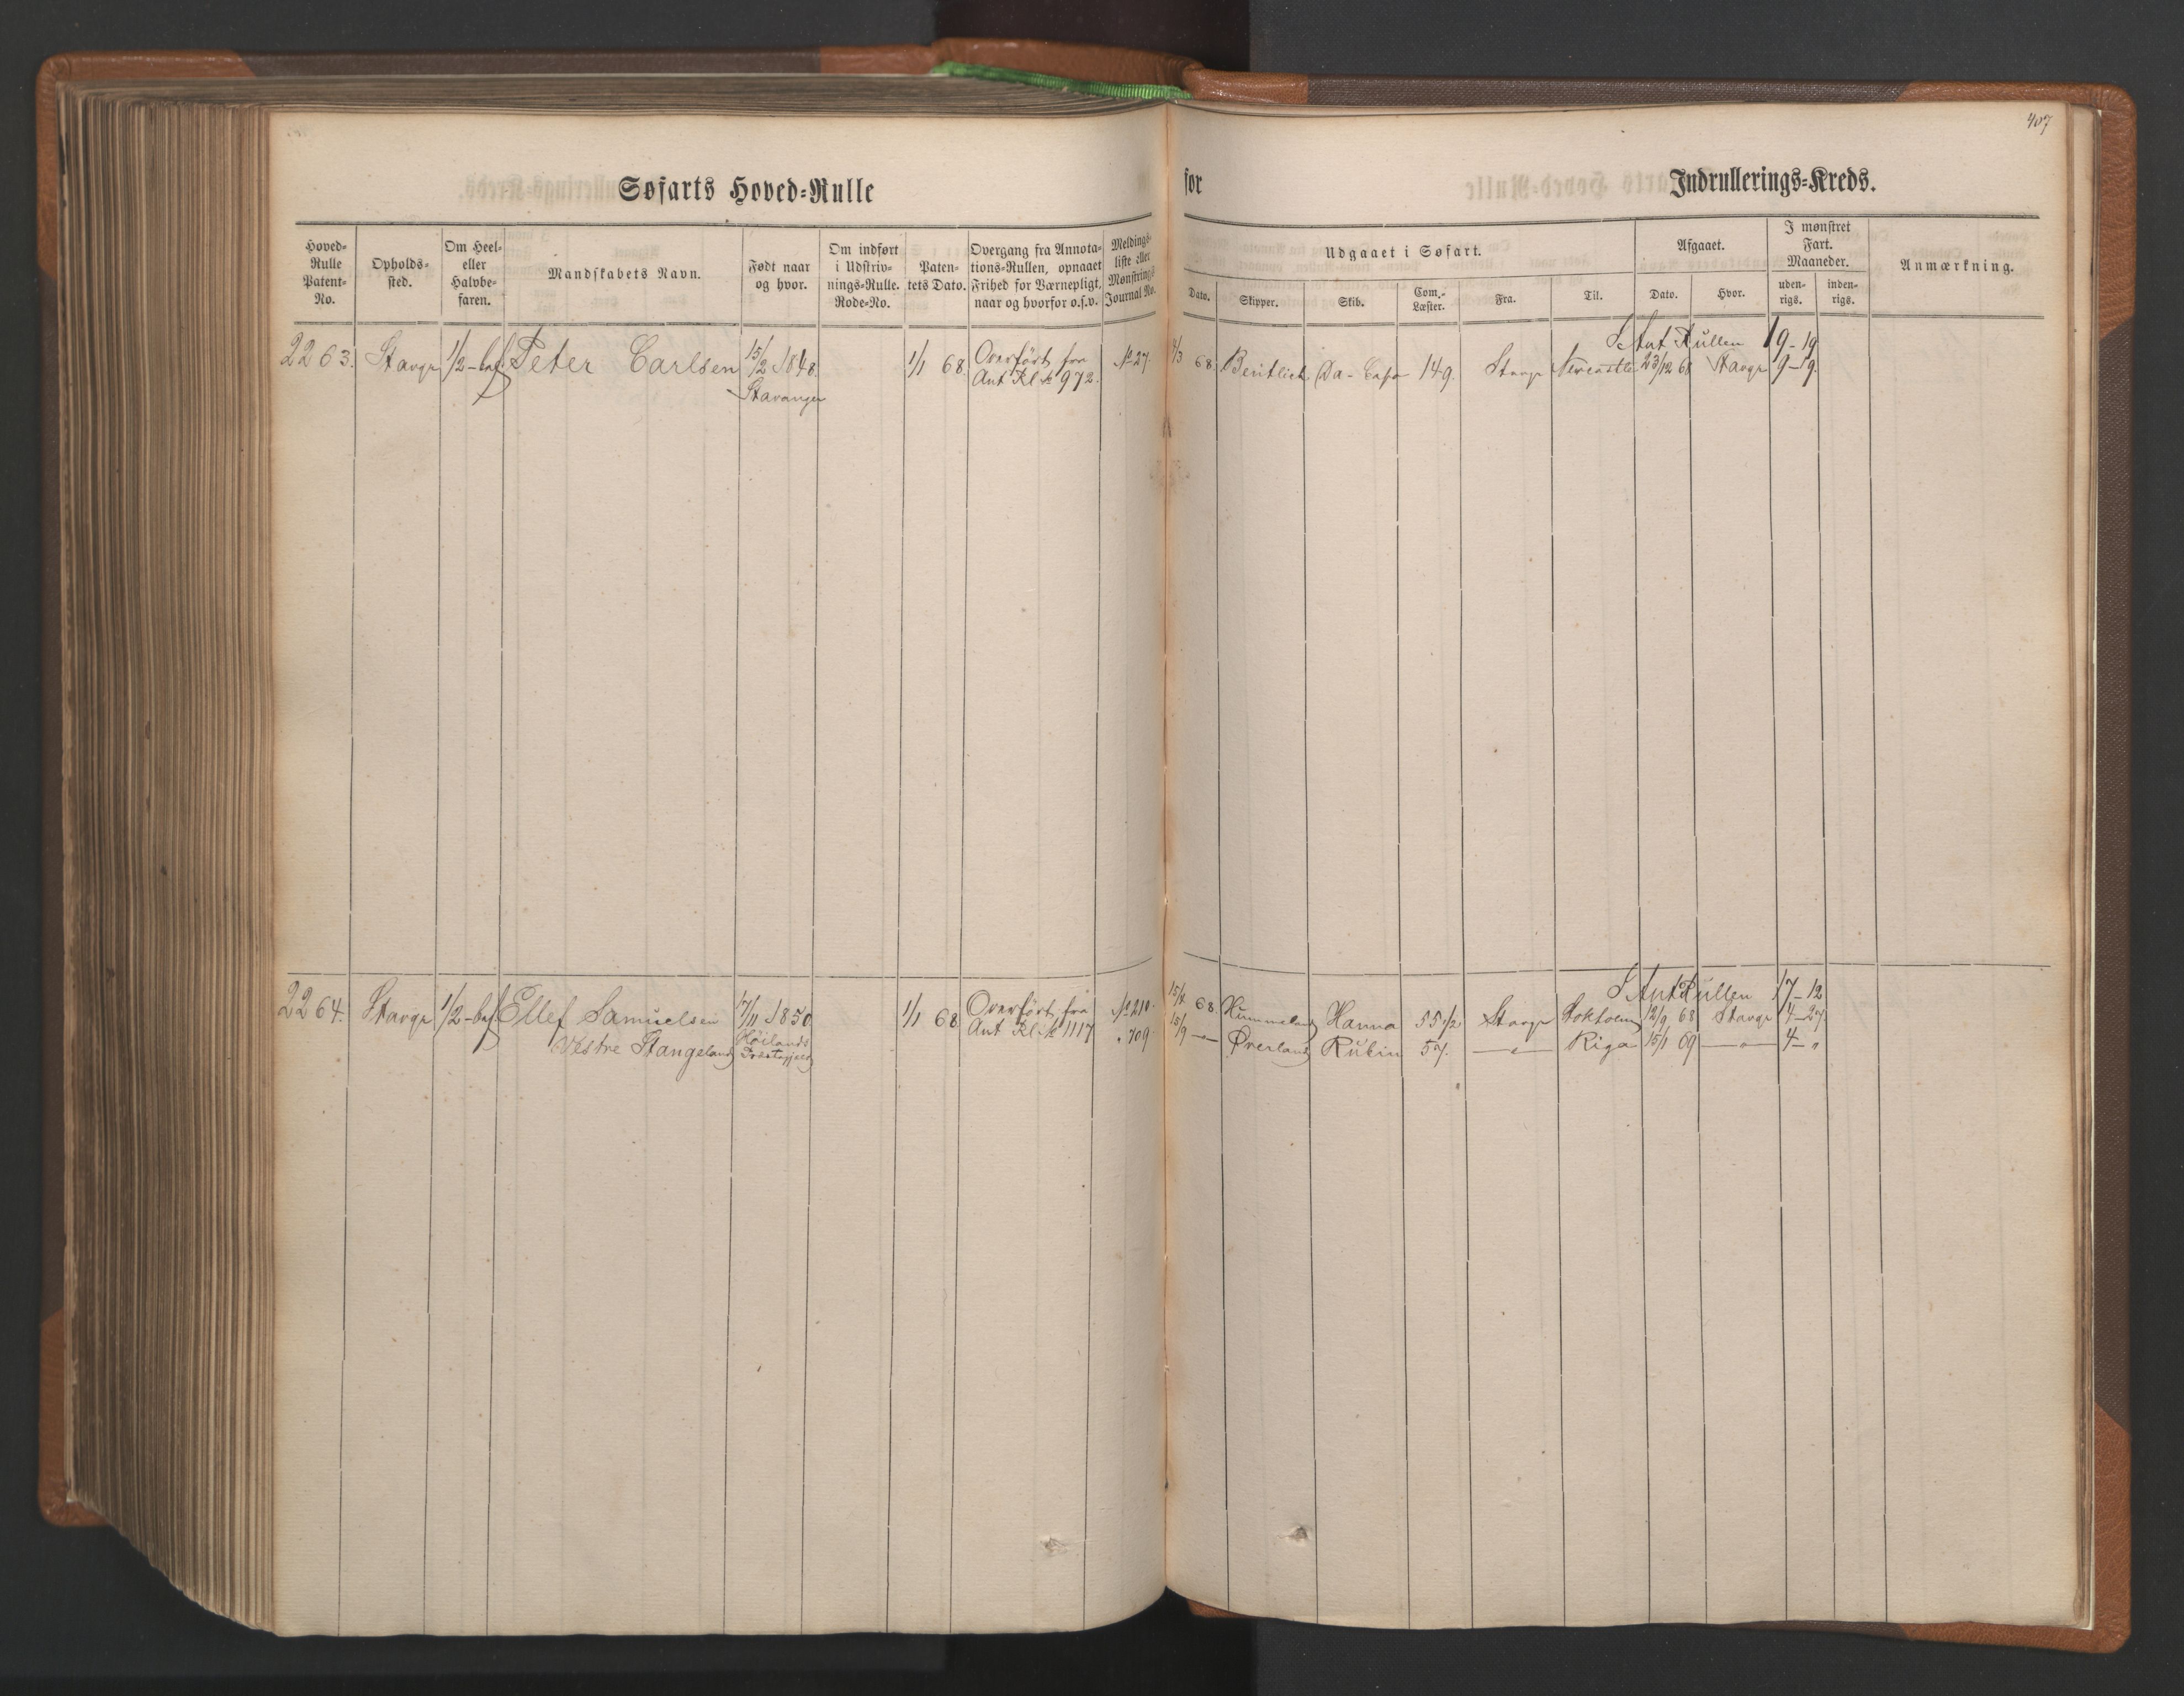 407
Søfarts Hoved=Rulle
for
Indrullerings=Kreds.
Hoved=
Rulle
Patent=
No.
Opholds=
sted.
Om Heel=
eller
Halvbe=
faren.
Mandskabets Navn.
Født naar
og hvor.
Om indført
i Udskriv=
nings=Rulle.
Rode=No.
Paten=
tets Dato.
Overgang fra Annota=
tions=Rullen, opnaaet
Frihed for Værnepligt,
naar og hvorfor o.s.v.
Meldings=
liste eller
Mønstrings
Journal No.
Udgaaet i Søfart.
Dato.
Skipper.
Skib.
Com.=
Læster.
Fra.
Til.
Afgaaet.
Dato.
Hvor.
I mønstret
Fart.
Maaneder.
uden=
rigs.
inden=
rigs.
Anmærkning.
I Ant Rullen 19-19
2263. Stavgr 1/2-bef Peter Carlsen 15/2 1848. 1/1 68. Overført fra No 27. 68. Da-Capo 149. Stavgr Newcastle 23/12 68 Stavgr 9-19.
Stavanger Ant Rl. No 972.
I Ant Rullen 17-12
2264. Stavgr 1/2-bef Ellef Samuelsen 17/11 1850 1/1 68 Overført fra No 210. 15/4 68. Hummeland Hanna 55 1/2 Stavgr Stokholm 12/9 68 Stavgr 4-27.
Vestre Stangeland Høilands Ant Rl. No 1117 " 709. 15/9 -"- Øverland Rubin 57. -"- Riga 15/1 69 -"- 4-"
Præstegjeld